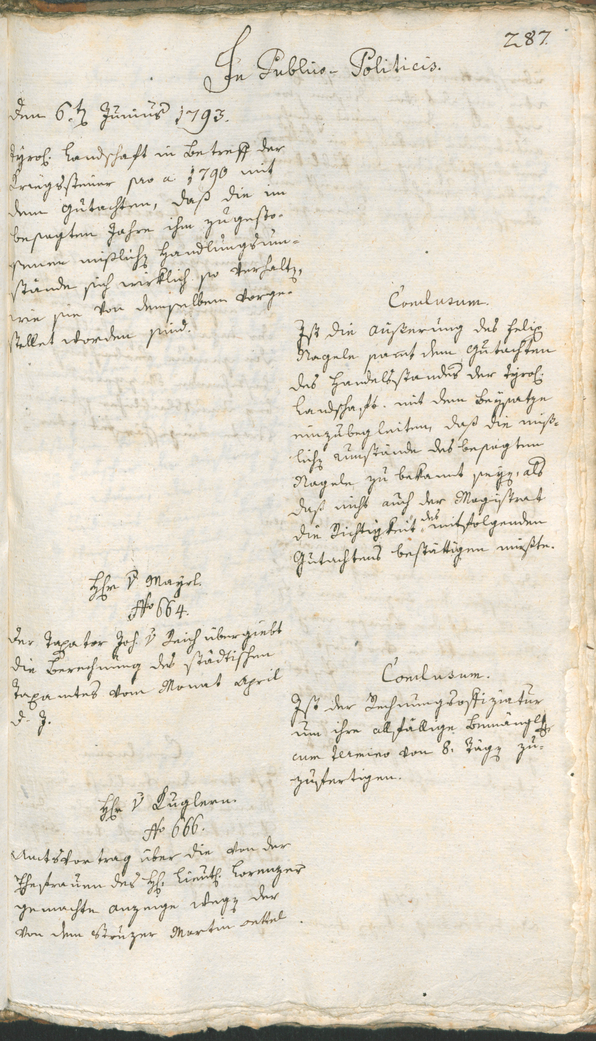 287.
In Publico-Politicis.
den 6.t Junius 1793.
Tyrol. Landschaft in Betreff der
Kriegssteuer pro a 1790 mit
dem Gutachten, daß die im
besagten Jahre ihm zugesto-
ßenen mißliche Handlungsum-
stände sich wirklich so verhalte,
wie sie von demselben vorge-
stellet worden sind.
Conclusum.
Ist die Äußerung des Felix
Nagele samt dem Gutachten
des Handelsstandes der Tyrol.
Landschaft. mit dem Beysatze
einzubegleiten, daß die miß-
liche Umstände des besagten
Nagele zu bekannt seye, als
daß nicht auch der Magistrat
die Richtigkeit des mitfolgenden
Gutachtens bestättigen müßte.
Hr. v Mayrl.
No 664.
Der Taxator Joh. v Reich übergiebt
die Berechnung des städtischen
Taxamtes vom Monat April
d. J.
Conclusum.
Ist der Rechnungsoffiziatur
um ihre allfällige Bemängl.
cum termino von 8. Täge zu-
zufertigen.
Hr. v Kuglern.
No 666.
Amtsvortrag über die von der
Ehefrauen des H. Lieut. Lorenzer
gemachte Anzeige wege der
von dem Stuzer Martin Oettel